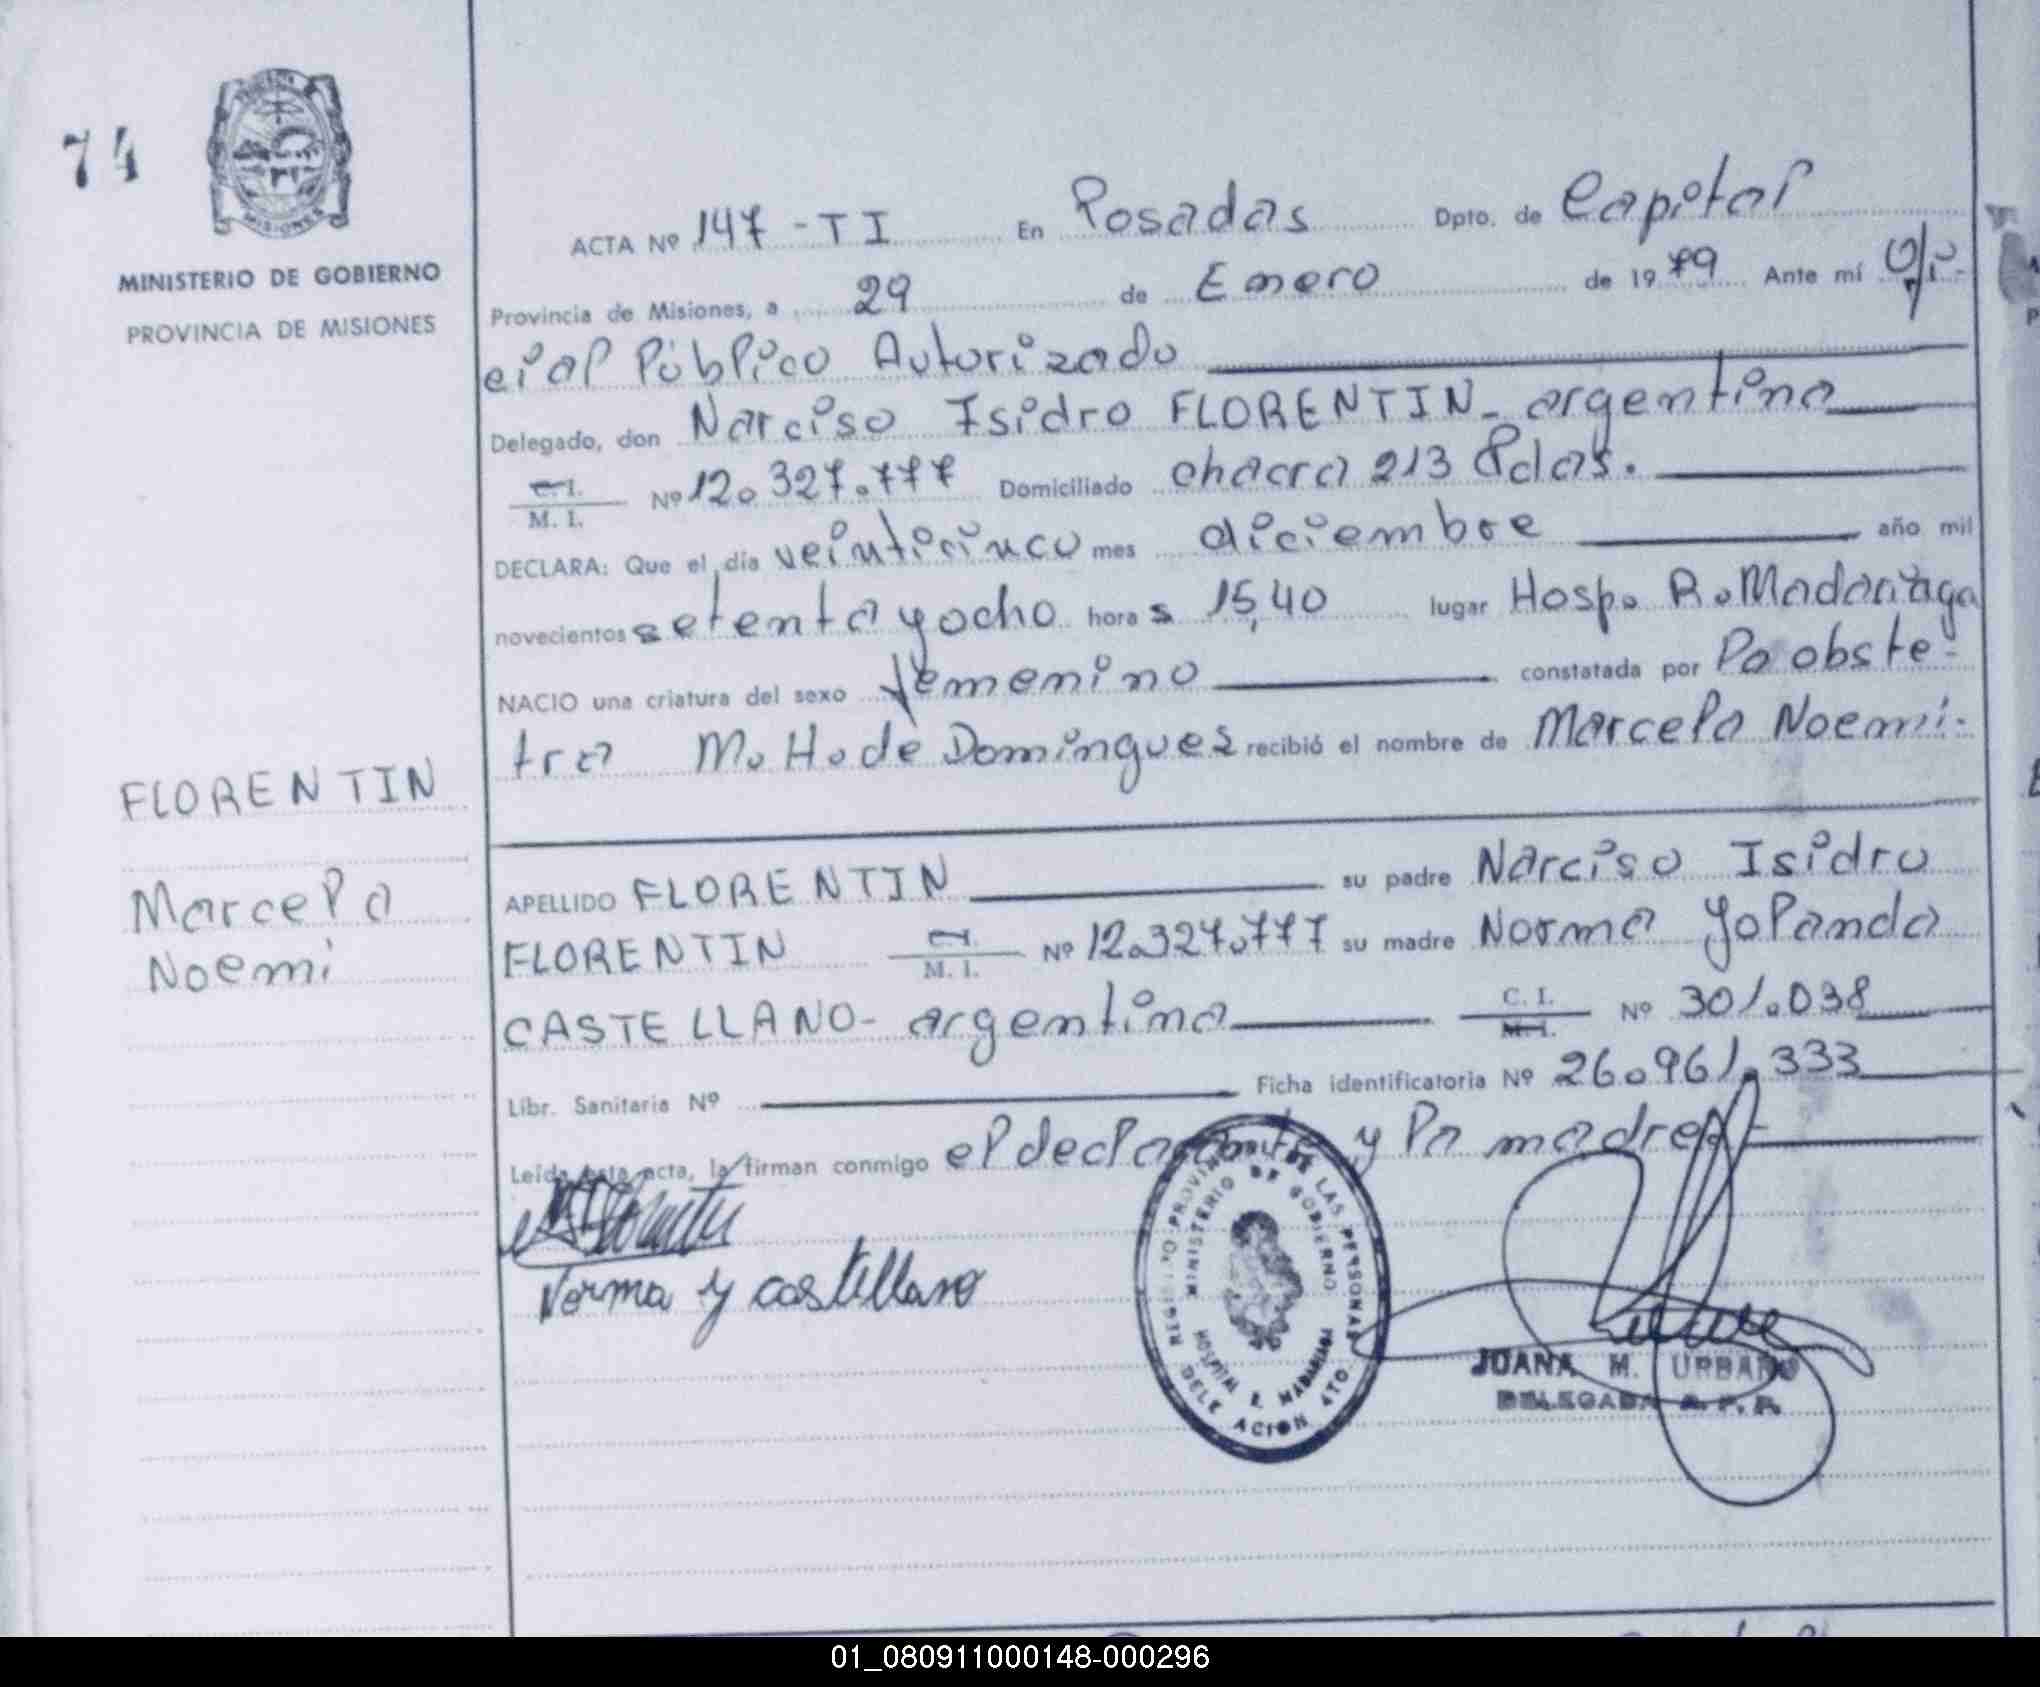 74
MISIONES
MINISTERIO DE GOBIERNO
PROVINCIA DE MISIONES
FLORENTIN
Marcela
Noemi
ACTA Nº 147-TI En Posadas Dpto. de Capital
Provincia de Misiones, a 29 de Enero de 1979 Ante mí Ofi-
cial Público Autorizado
Delegado, don Narciso Isidro FLORENTIN - argentino
C. I.
M. I. Nº 12.327.777 Domiciliado chacra 213 Pdas.
DECLARA: Que el día veinticinco mes diciembre año mil
novecientos setenta y ocho hora s 15,40 lugar Hosp. R. Madariaga
NACIO una criatura del sexo femenino constatada por la obste-
tra M. H. de Domingues recibió el nombre de Marcela Noemi.
APELLIDO FLORENTIN su padre Narciso Isidro
FLORENTIN C. I.
M. I. Nº 12.327.777 su madre Norma Yolanda
CASTELLANO - argentina C. I.
M. I. Nº 301.038
Libr. Sanitaria Nº Ficha identificatoria Nº 26.961.333
Leída esta acta, la firman conmigo el declarante y la madre
Norma y castellano
REGISTRO PROVINCIAL DE LAS PERSONAS
MINISTERIO DE GOBIERNO
HOSPITAL R. MADARIAGA
DELEGACION 4TO.
JUANA M. URBANO
DELEGADA R. P. P.
01_080911000148-000296